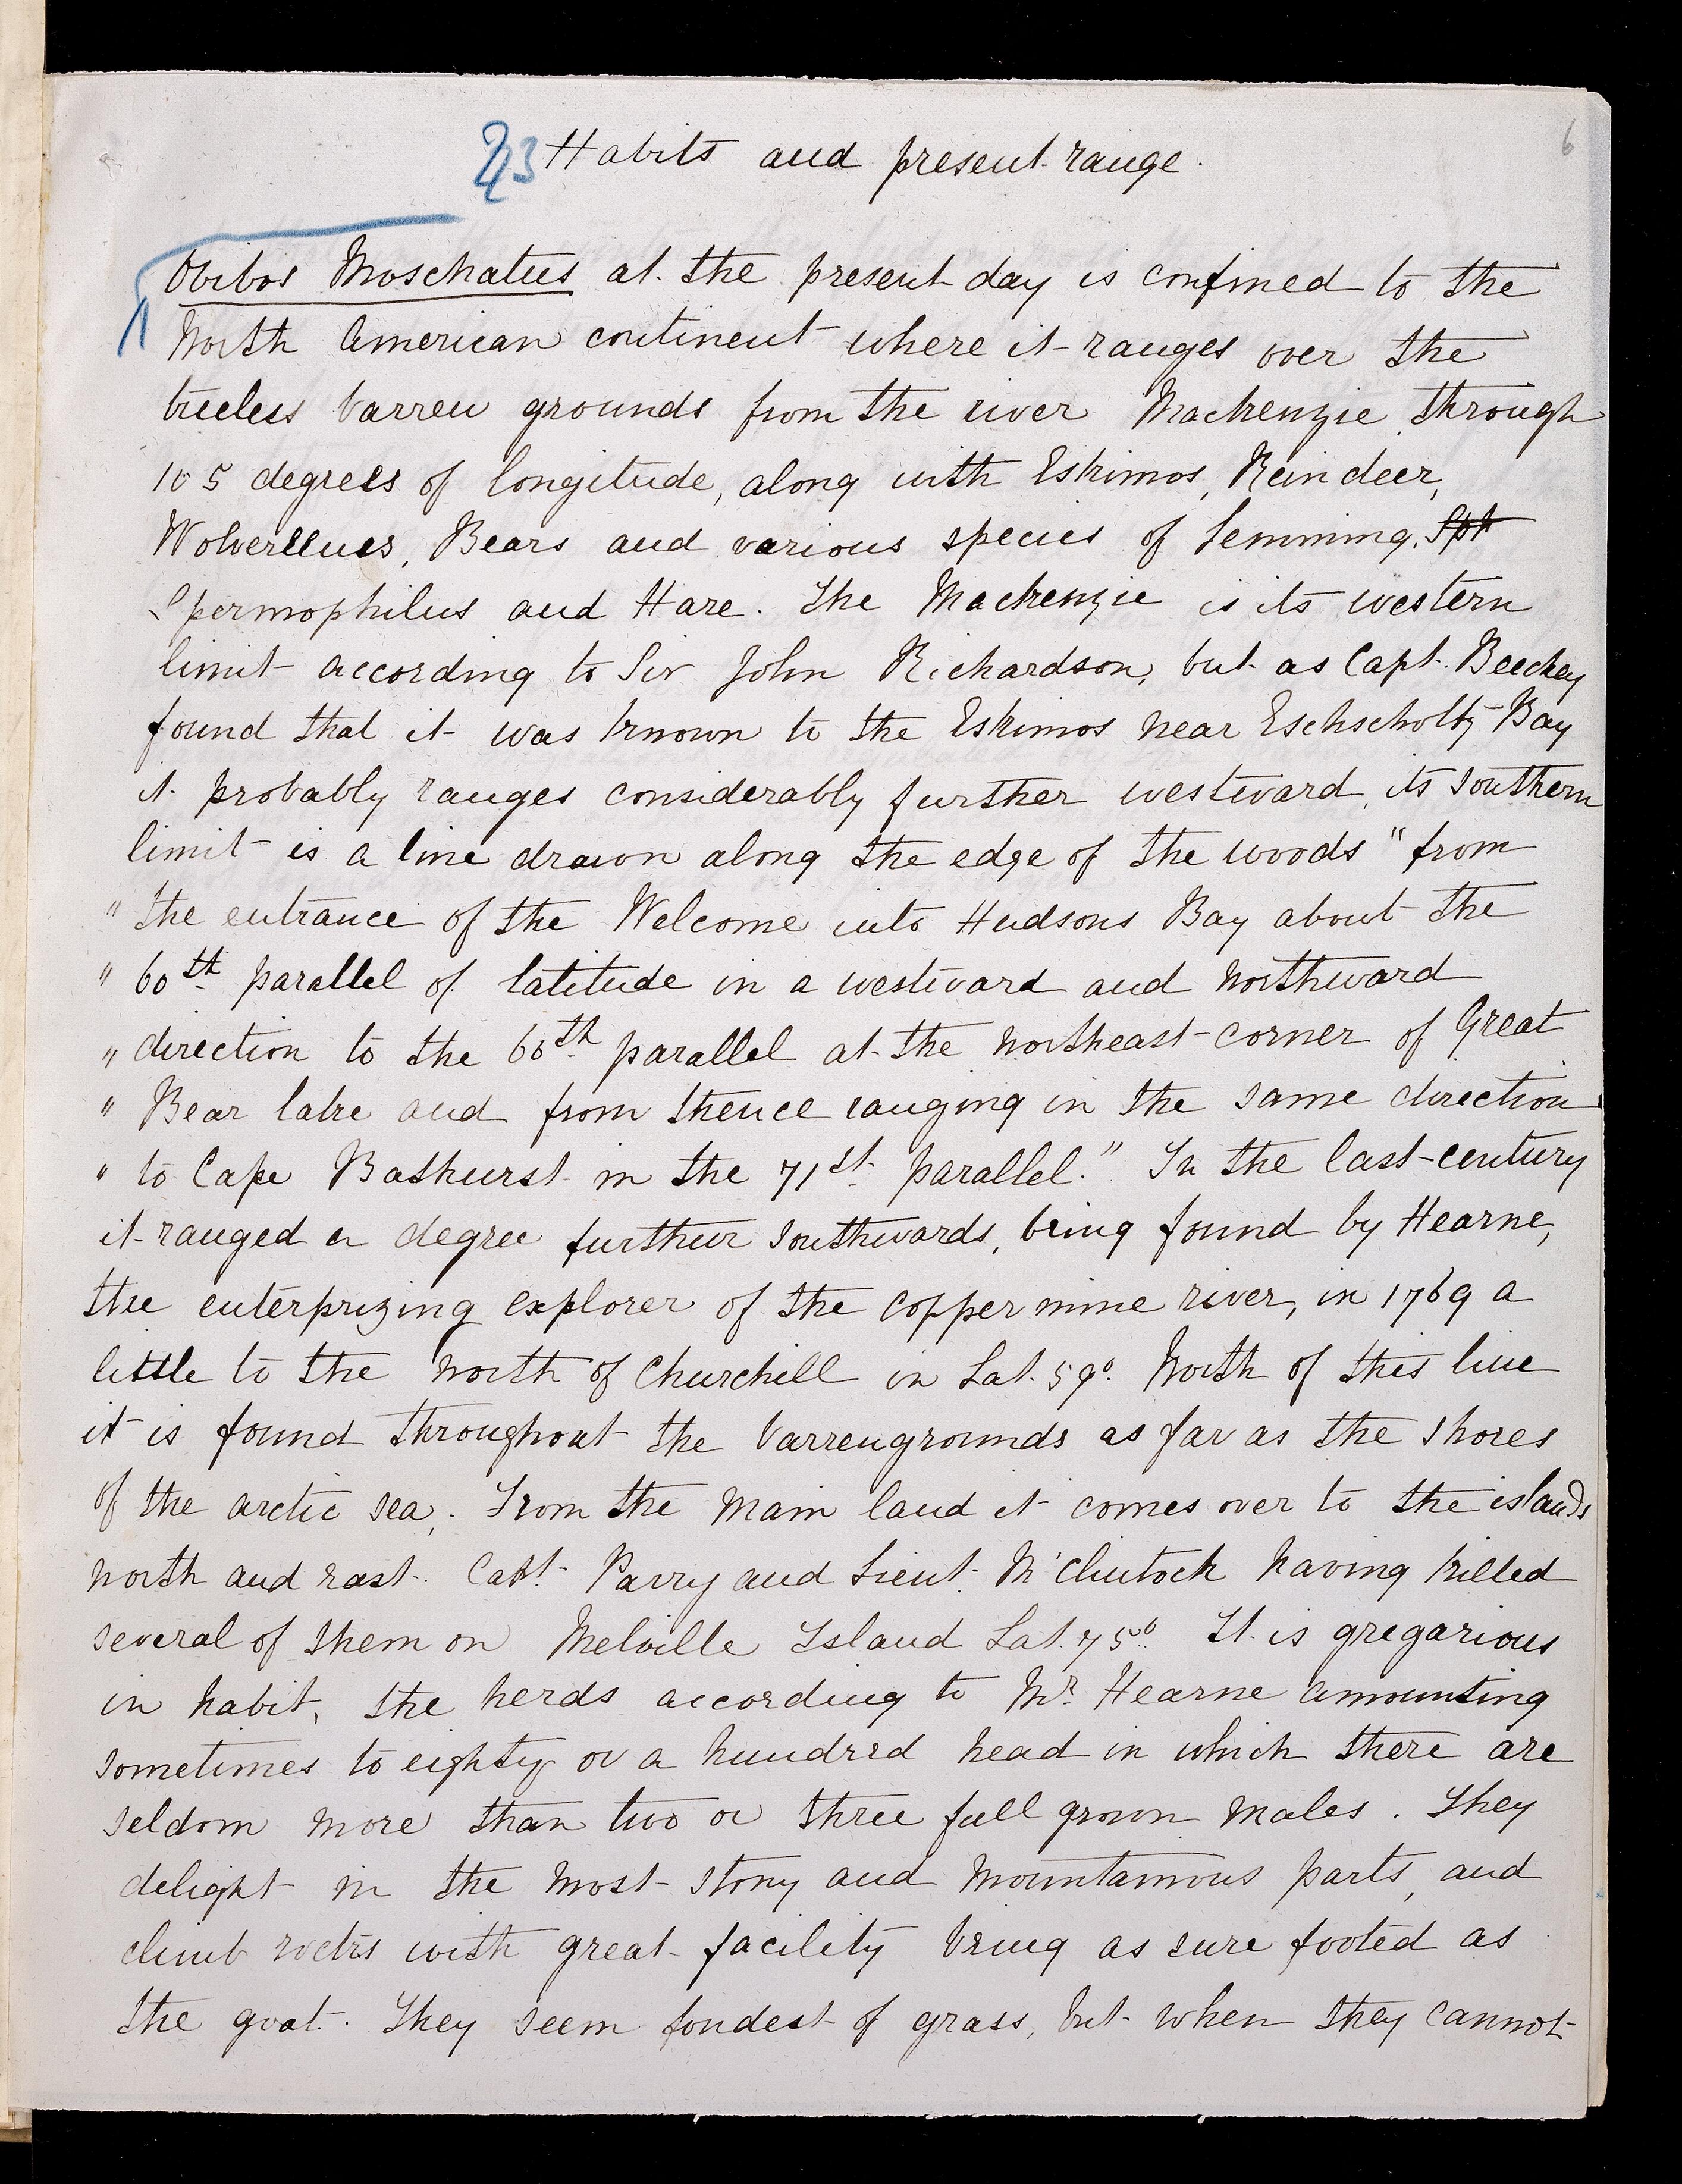 6
23 Habits and present range.
Ovibos Moschatus at the present day is confined to the
North American continent where it ranges over the
treeless barren grounds from the river Mackenzie through
105 degrees of longitude, along with Eskimos, Reindeer,
Wolverenes, Bears and various species of Lemming, Sph
Spermophilus and Hare. The Mackenzie is its western
limit according to Sir John Richardson, but as Capt. Beechey
found that it was known to the Eskimos near Eschscholtz Bay
it probably ranges considerably further westward, its southern
limit is a line drawn along the edge of the woods "from
" the entrance of the Welcome into Hudsons Bay about the
" 60th parallel of latitude in a westward and northward
" direction to the 66th parallel at the northeast corner of Great
" Bear lake and from thence ranging in the same direction
" to Cape Bathurst in the 71st parallel." In the last century
it ranged a degree further southwards, being found by Hearne,
the enterprizing explorer of the copper mine river, in 1769 a
little to the north of Churchill in Lat. 59°. North of this line
it is found throughout the barrengrounds as far as the shores
of the arctic sea. From the main land it comes over to the islands
north and east. Capt. Parry and Lieut. McClintock having killed
several of them on Melville Island Lat. 75° It is gregarious
in habit, the herds according to Mr. Hearne amounting
sometimes to eighty or a hundred head in which there are
seldom more than two or three full grown males. They
delight in the most stony and mountainous parts, and
climb rocks with great facility being as sure footed as
the goat. They seem fondest of grass, but when they cannot